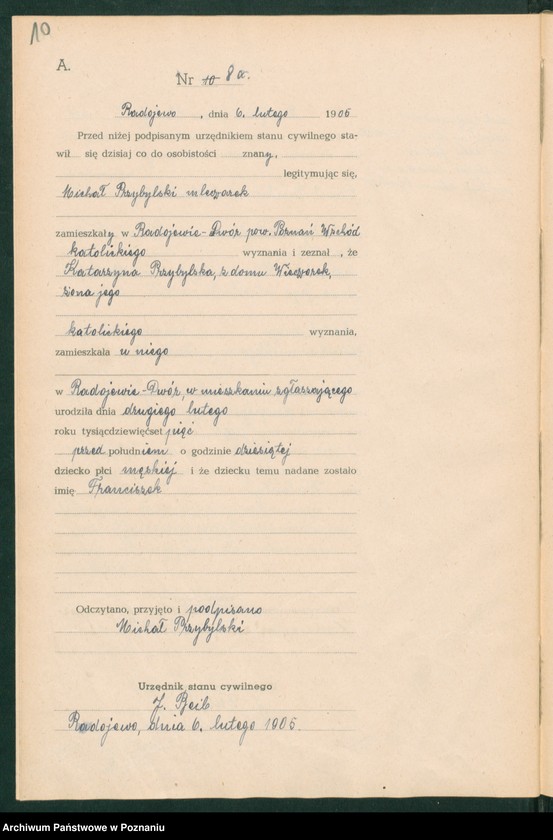 10
A.
Nr 10 8a.
Radojewo, dnia 6. lutego 1905
Przed niżej podpisanym urzędnikiem stanu cywilnego sta-
wił się dzisiaj co do osobistości znany,
legitymując się,
Michał Przybylski mleczarek
zamieszkały w Radojewie-Dwór pow. Poznań Wschód
katolickiego wyznania i zeznał, że
Katarzyna Przybylska, z domu Wieczorek,
żona jego
katolickiego wyznania,
zamieszkała u niego
w Radojewie-Dwór, w mieszkaniu zgłaszającego
urodziła dnia drugiego lutego
roku tysiącdziewięćset pięć
przed południem o godzinie dziesiątej
dziecko płci męskiej i że dziecku temu nadane zostało
imię Franciszek
Odczytano, przyjęto i podpisano
Michał Przybylski
Urzędnik stanu cywilnego
J. Beib
Radojewo, dnia 6. lutego 1905.
Archiwum Państwowe w Poznaniu